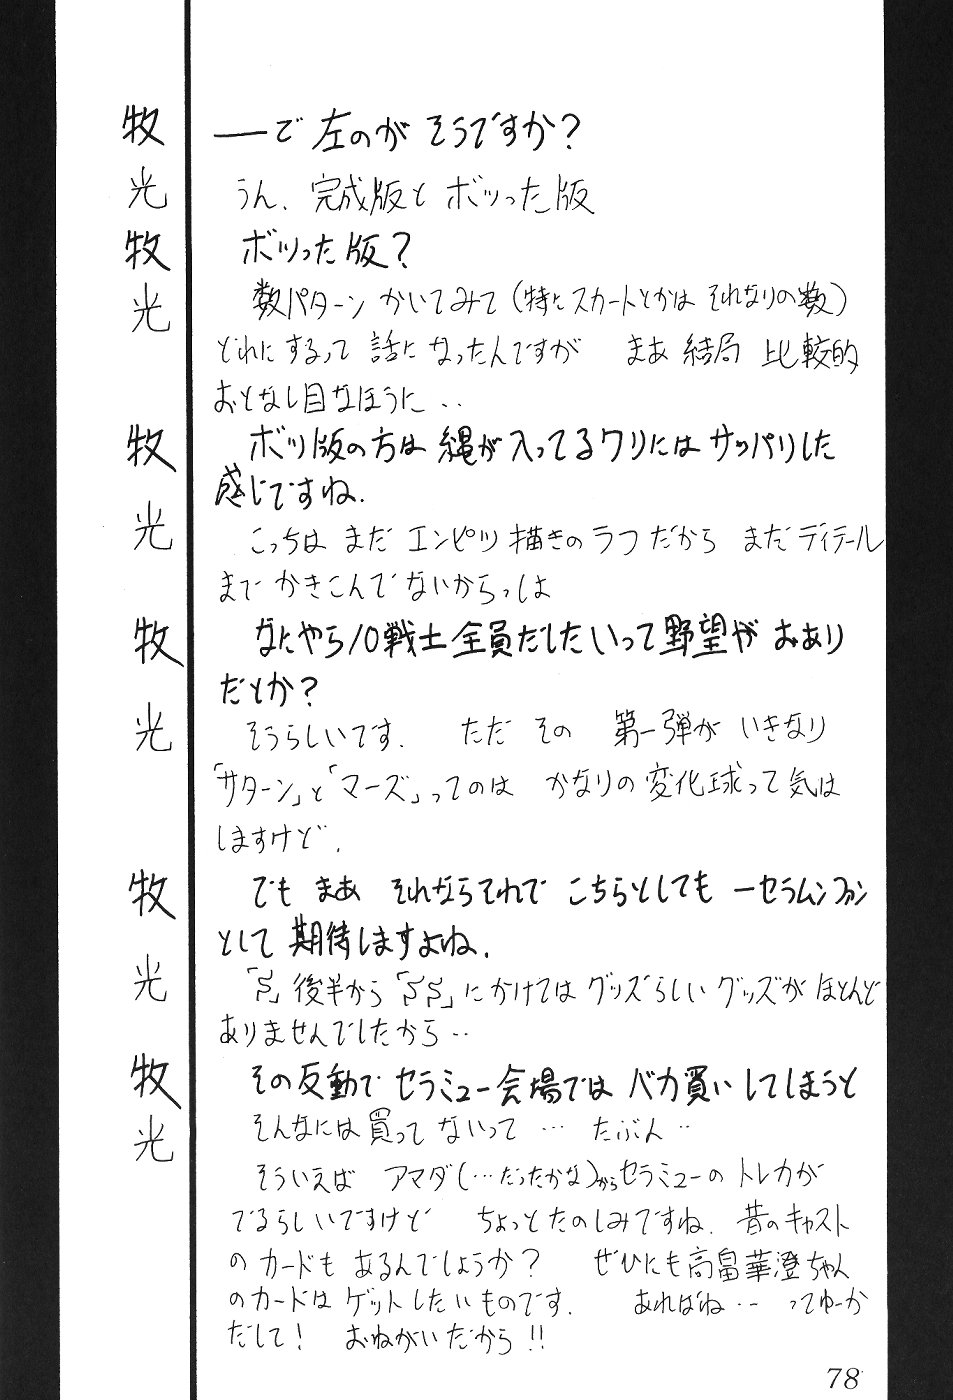 牧 ──で 左のが そうですか？
光 うん、完成版と ボツった版
牧 ボツった版？
光 数パターン かいてみて（特に スカートとかは それなりの数）
どれにするって 話に なったんですが まあ 結局 比較的
おとなし目なほうに‥
牧 ボツ版の方は 縄が入ってるワリには サッパリした
感じですね.
光 こっちは まだ エンピツ描きのラフだから まだディテール
まで かきこんで ないからっしょ
牧 なにやら10戦士全員だしたいって野望が おあり
だとか？
光 そうらしいです. ただ その 第一弾が いきなり
「サターン」と「マーズ」ってのは かなりの変化球って気は
しますけど.
牧 でも まあ それならそれで こちらとしても 一セラムンファン
として 期待しますよね.
光 「S」後半から「SS」にかけては グッズらしい グッズが ほとんど
ありませんでしたから‥
牧 その反動で セラミュー会場では バカ買い してしまうと
光 そんなには買って ないって … たぶん‥
そういえば アマダ（…だったかな）からセラミューの トレカが
でるらしいですけど ちょっとたのしみですね. 昔のキャスト
のカードも あるんでしょうか？ ぜひにも高畠華澄ちゃん
のカードは ゲットしたいものです. あればね‥ー ってゆーか
だして！ おねがいだから！！
78